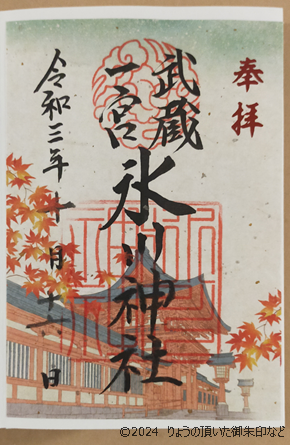 奉拝
武蔵
一宮
氷川神社
令和三年十一月十六日
©2024 りょうの頂いた御朱印など